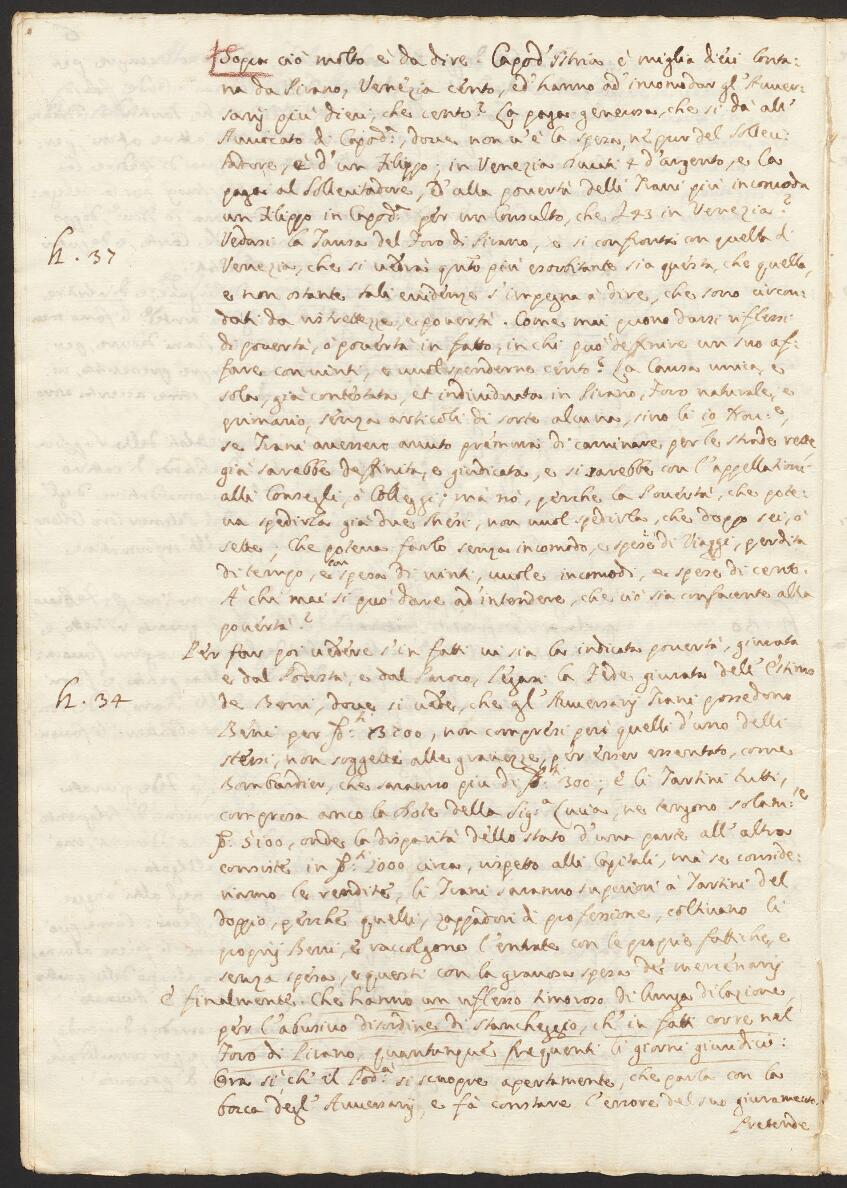 Sopra ciò molto è da dire. Capod'Istria è miglia dieci lonta-
na da Pirano, Venezia cento, ed'hanno ad'incomodar gl'Auver-
sarij più dieci, che cento? La paga generosa, che si dà all'
Auuocato di Capod:ª, doue non u'è la spesa, nè pur del Solleci-
tadore, è d'un Filippo; in Venezia d'argento, e la
paga al Sollecitadore, d'alla pouertà delli Trani più incomoda
un Filippo in Capod:ª per un Consulto, che £ 43 in Venezia?
h. 37
Vedasi la Tansa del Foro di Pirano, e si confronta con quella di
Venezia, che si uedrà più esorbitante sia questa, che quella,
e non ostante tali euidenze s'impegna à dire, che sono circon-
dati da ristrettezze, e pouertà. Come mai puono darsi riflessi
di pouertà, ò pouertà in fatto, in chi può definire un suo af-
fare con uinti, e uuol spenderne cento? La Causa unica, e
sola, già contestata, et indiuiduata in Pirano, Foro naturale, e
primario, senza articoli di sorte alcuna, sino li 10
se Trani auessero auuto premura di caminare per le strade rette
già sarebbe definita, e giudicata, e si sarebbe con l'appellazioni
alli Consegli, ò Colleggi; mà nò, perche la Pouertà, che pote-
ua spedirla già due Mesi, non uuol spedirla, che doppo sei, ò
sette; Che poteua farlo senza incomodo, e spese di Viaggi, perdita
di tempo, e con spesa di uinti, uuole incomodi, e spese di cento.
A' chi mai si può dare ad'intendere, che ciò sia confacente alla
pouertà?
Per far poi uedere s'in fatti ui sia la indicata pouertà, giurata
e dal Podestà, e dal Paroco, la Fede giurata dell'Estimo
h. 34
de Beni, doue si uede, che gl'Auuersarij Trani possedono
Beni per 13100, non compresi però quelli d'uno delli
stessi, non soggetti alle grauezze, per esser essentato, come
Bombardier, che saranno più di 300; è li Tartini tutti,
compresa anco la Dote della Sig:ª Lucia, ne tengono solam:e
5100, onde la disparità dello stato d'una parte all'altra
consiste in 2000 circa, rispetto alli Capitali, mà se conside-
riamo le rendite, li Trani saranno superiori à Tartini del
doppio, perchè quelli, zappadori di professione, coltiuano li
proprij Beni, e raccolgono l'entrate con le proprie fattiche, e
senza spesa, e questi con la grauosa spesa de mercenarij
E' finalmente. Che hanno un riflesso timoroso di lunga dilazione,
per l'abusiuo disordine di stancheggio, ch'in fatti corre nel
Foro di Pirano, quantunque frequenti li giorni giuridici:
Ora sì, ch'il Pod:à si scuopre apertamente, che parla con la
bocca degl'Auuersarij, e fà constare l'errore del suo giuramento.
Pretende